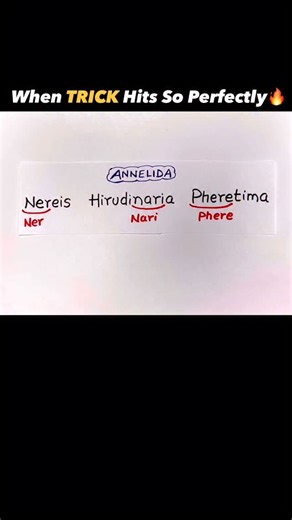 When TRICK Hits So Perfectly🔥
ANNELIDA
Nereis Hirudinaria Pheretima
Ner Nari Phere